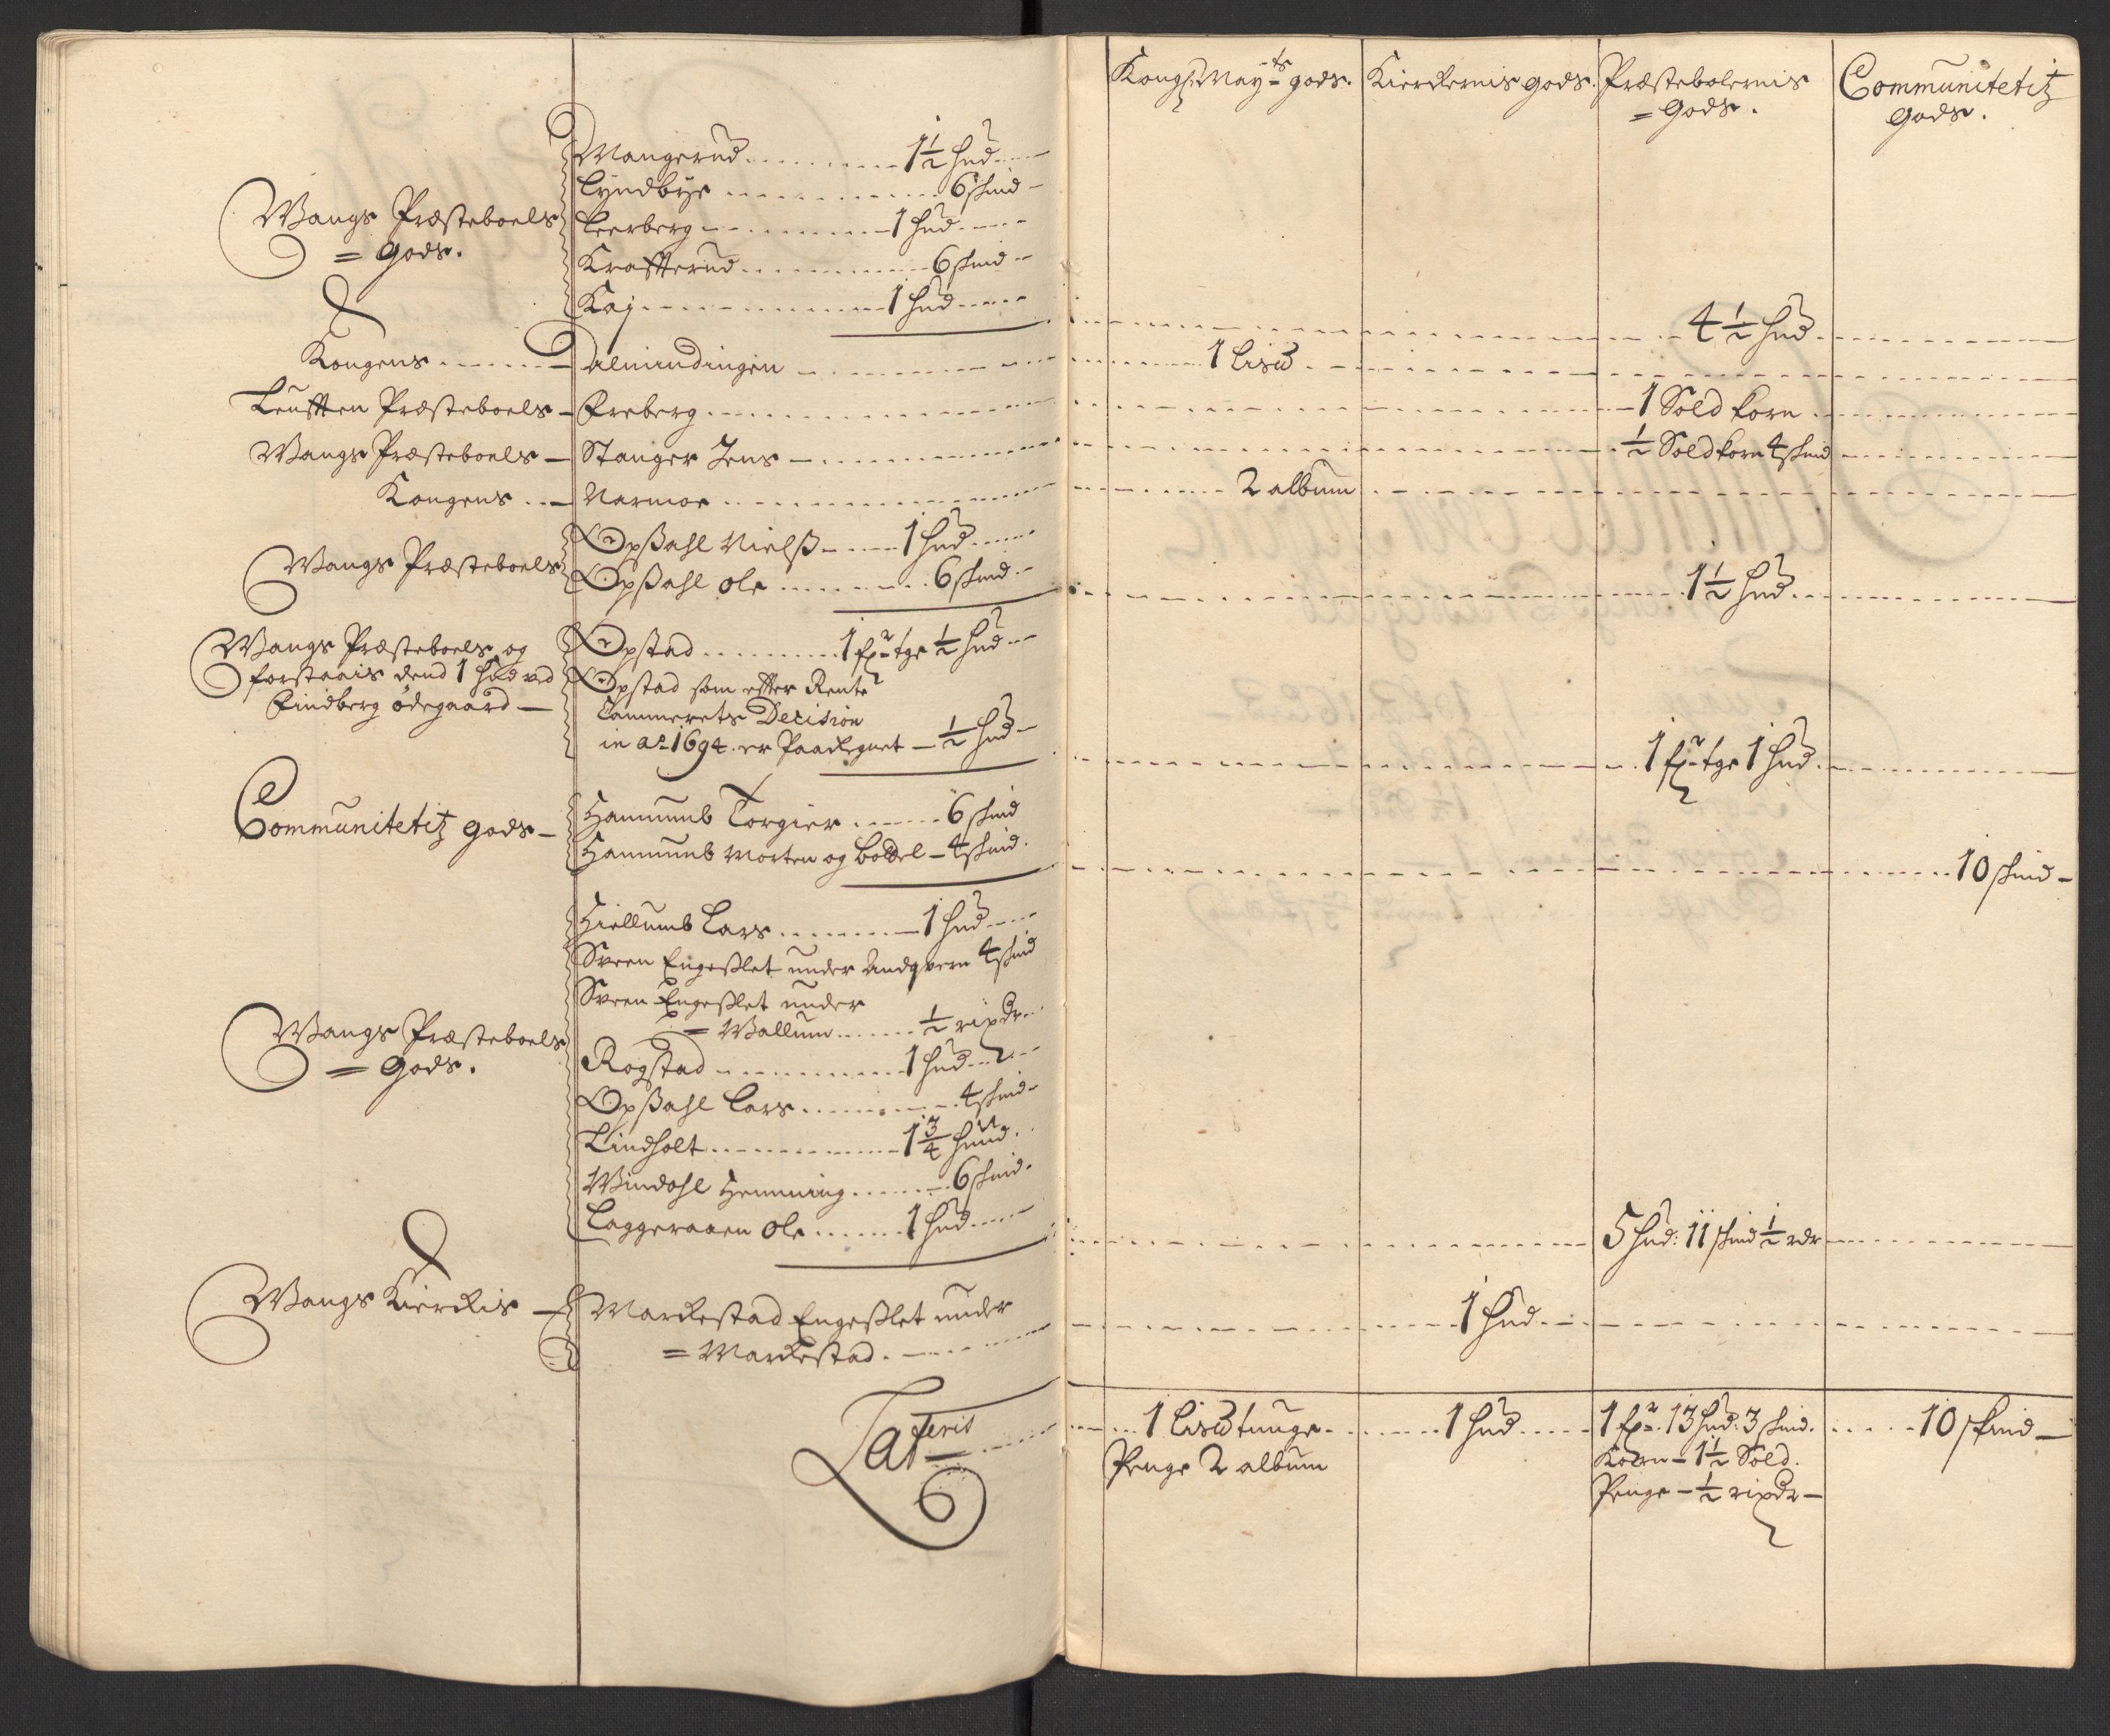 Kongs: May:ts gods.
Kierckernis gods.
Præstebolernis
= Gods.
Communitetitz
gods.
Wangs Præsteboels
= Gods.
Mangerud 1½ hud
Lyndbye 6 skind
Leerberg 1 hud
Krafterud 6 skind
Kaj 1 hud
4½ hud
Kongens Almindingen 1 Lisɯ
Leuften Præsteboels Freberg 1 Sold korn
Wangs Præsteboels Stanger Jens ½ Sold korn 4 skind
Kongens Narmoe 2 album
Wangs Præsteboels
Opsahl Nielß 1 hud
Opsahl ole 6 skind
1½ hud
Wangs Præsteboels og
forstaais dend 1 hud ved
Findberg ödegaard
Opstad 1 fr: tge ½ hud
Opstad som efter Rente
Cammerets Decision
in ao 1694. er Paaregnet ½ hud
1 fr: tge 1 hud
Communitetitz gods
Hammumb Torgier 6 skind
Hammumb Morten og Boedel 4 skind
10 skind
Wangs Præsteboels
= Gods.
Hiellumb Lars 1 hud
Sveen Engesslet under Andqvern 4 skind
Sveen Engesslet under
= Wallum ½ rixdr
Rogstad 1 hud
Opsahl Lars 4 skind
Lindholt 1¾ huud
Windahl Henning 6 skind
Laggeraaen Ole 1 hud
5 hud: 11 skind ½ rdr
Wangs Kierckis
Marckestad Engesslet under
= Marckestad
1 hud
Lateris
1 Lisɯ tunge
Penge 2 album
1 hud
1 fr: 13 hud: 3 skind.
Korn 1½ Sold.
Penge ½ rixdr
10 skind